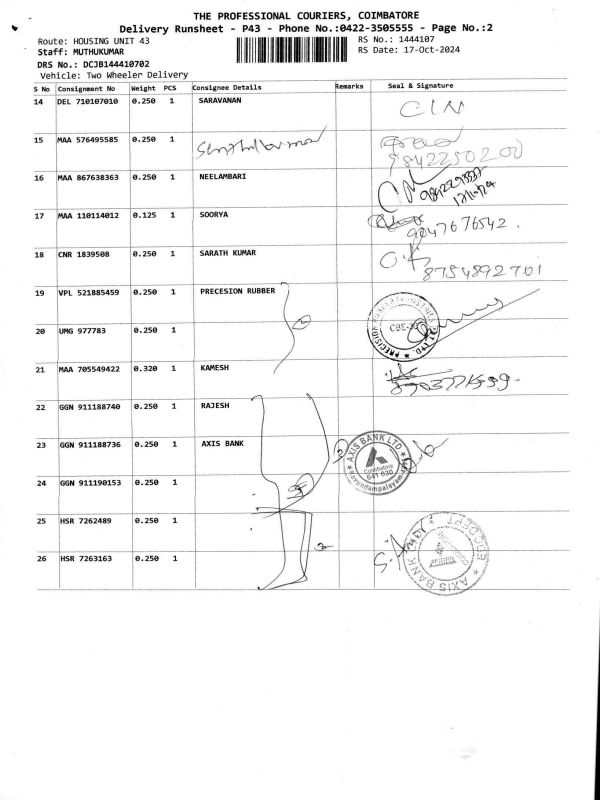 THE PROFESSIONAL COURIERS, COIMBATORE
Delivery Runsheet - P43 - Phone No.:0422-3505555 - Page No.:2
Route: HOUSING UNIT 43 RS No.: 1444107
Staff: MUTHUKUMAR RS Date: 17-Oct-2024
DRS No.: DCJB144410702
Vehicle: Two Wheeler Delivery
S No Consignment No Weight PCS Consignee Details Remarks Seal & Signature
14 DEL 710107010 0.250 1 SARAVANAN
15 MAA 576495585 0.250 1 Senthilkumar
9842250200
16 MAA 867638363 0.250 1 NEELAMBARI
17 MAA 110114012 0.125 1 SOORYA
9047676542.
18 CNR 1839508 0.250 1 SARATH KUMAR
8754892701
19 VPL 521885459 0.250 1 PRECESION RUBBER
CBE-
20 UMG 977783 0.250 1
21 MAA 705549422 0.320 1 KAMESH
22 GGN 911188740 0.250 1 RAJESH
23 GGN 911188736 0.250 1 AXIS BANK
AXIS BANK LTD
Coimbatore
641 030
Kavundampalayam
24 GGN 911190153 0.250 1
25 HSR 7262489 0.250 1
26 HSR 7263163 0.250 1
AXIS BANK